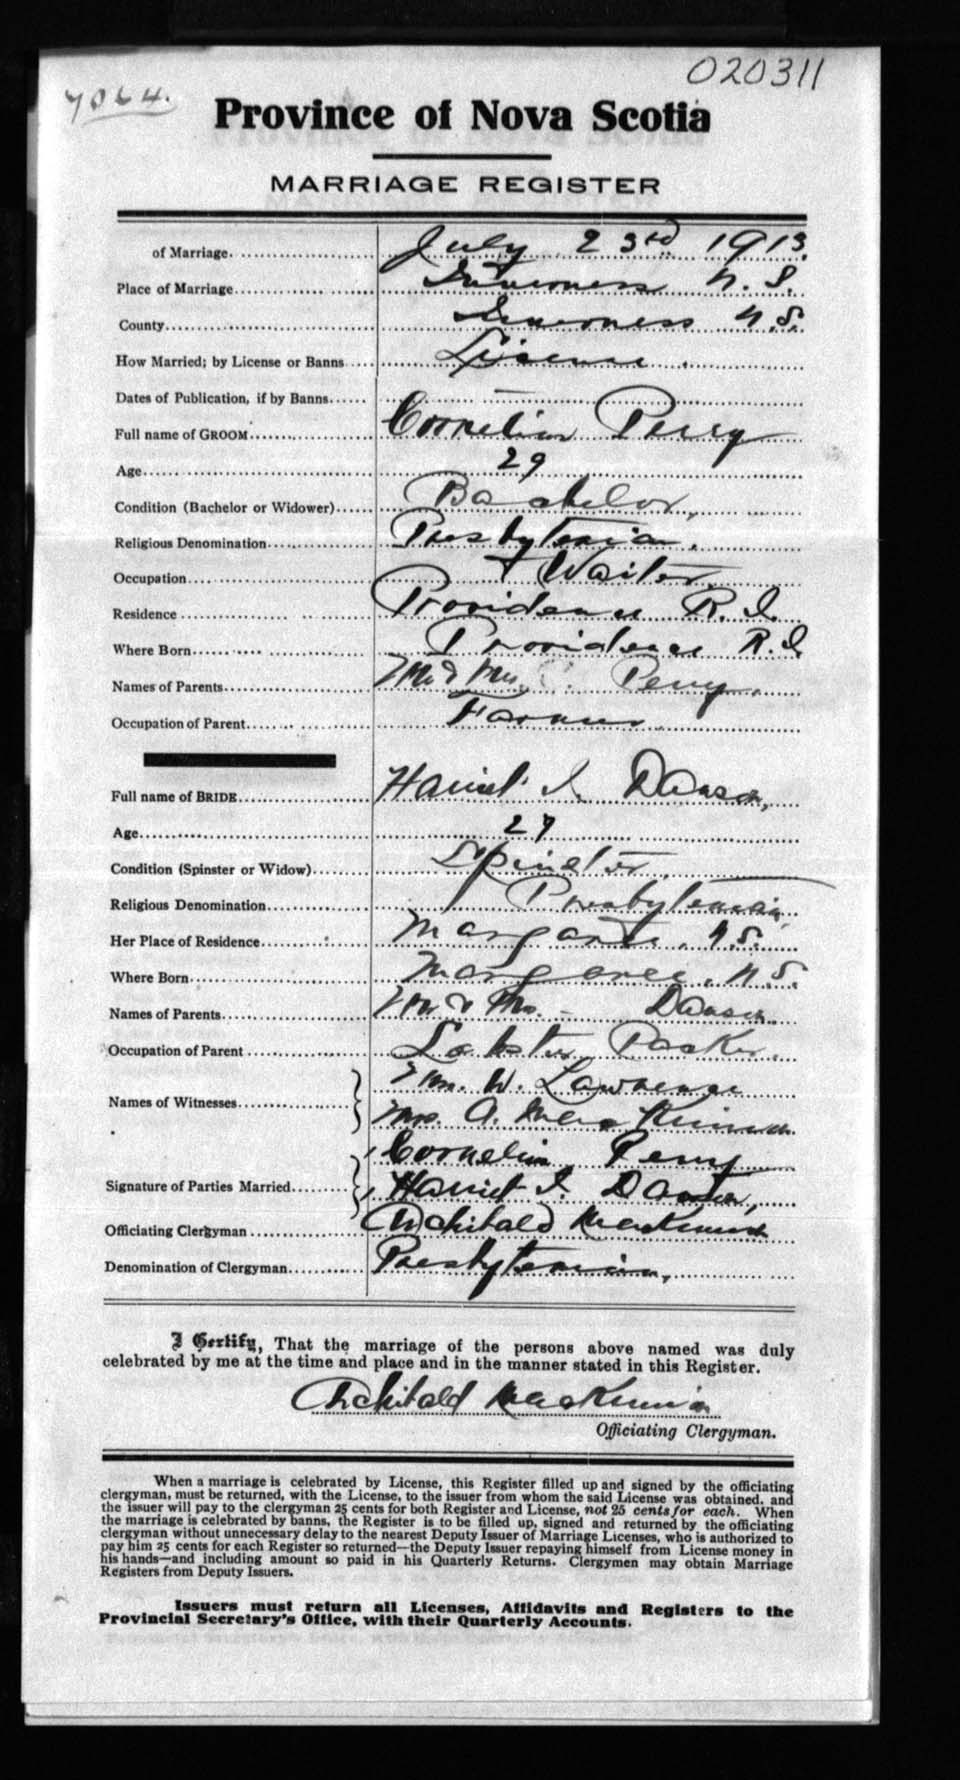 020311
7064.
Province of Nova Scotia
MARRIAGE REGISTER
of Marriage. July 23rd 1913.
Place of Marriage Inverness N. S.
County Inverness N.S.
How Married; by License or Banns License.
Dates of Publication, if by Banns —
Full name of GROOM Cornelius Perry
Age 29
Condition (Bachelor or Widower) Bachelor,
Religious Denomination Presbyterian.
Occupation Waiter
Residence Providence R. I.
Where Born Providence R. I
Names of Parents Mr & Mrs. C. Perry.
Occupation of Parent Farmer
Full name of BRIDE Harriet I. Dawson,
Age 27
Condition (Spinster or Widow) Spinster,
Religious Denomination Presbyterian,
Her Place of Residence Margaree, N.S.
Where Born Margaree, N.S.
Names of Parents Mr & Mrs. — Dawson
Occupation of Parent Lobster Packer.
Names of Witnesses Wm. W. Lawrence
Mrs. A. MacKinnon
Cornelius Perry
Signature of Parties Married Harriet I. Dawson,
Officiating Clergyman Archibald MacKinnon
Denomination of Clergyman Presbyterian,
I Certify, That the marriage of the persons above named was duly
celebrated by me at the time and place and in the manner stated in this Register.
Archibald MacKinnon
Officiating Clergyman.
When a marriage is celebrated by License, this Register filled up and signed by the officiating
clergyman, must be returned, with the License, to the issuer from whom the said License was obtained, and
the issuer will pay to the clergyman 25 cents for both Register and License, not 25 cents for each. When
the marriage is celebrated by banns, the Register is to be filled up, signed and returned by the officiating
clergyman without unnecessary delay to the nearest Deputy Issuer of Marriage Licenses, who is authorized to
pay him 25 cents for each Register so returned—the Deputy Issuer repaying himself from License money in
his hands—and including amount so paid in his Quarterly Returns. Clergymen may obtain Marriage
Registers from Deputy Issuers.
Issuers must return all Licenses, Affidavits and Registers to the
Provincial Secretary's Office, with their Quarterly Accounts.